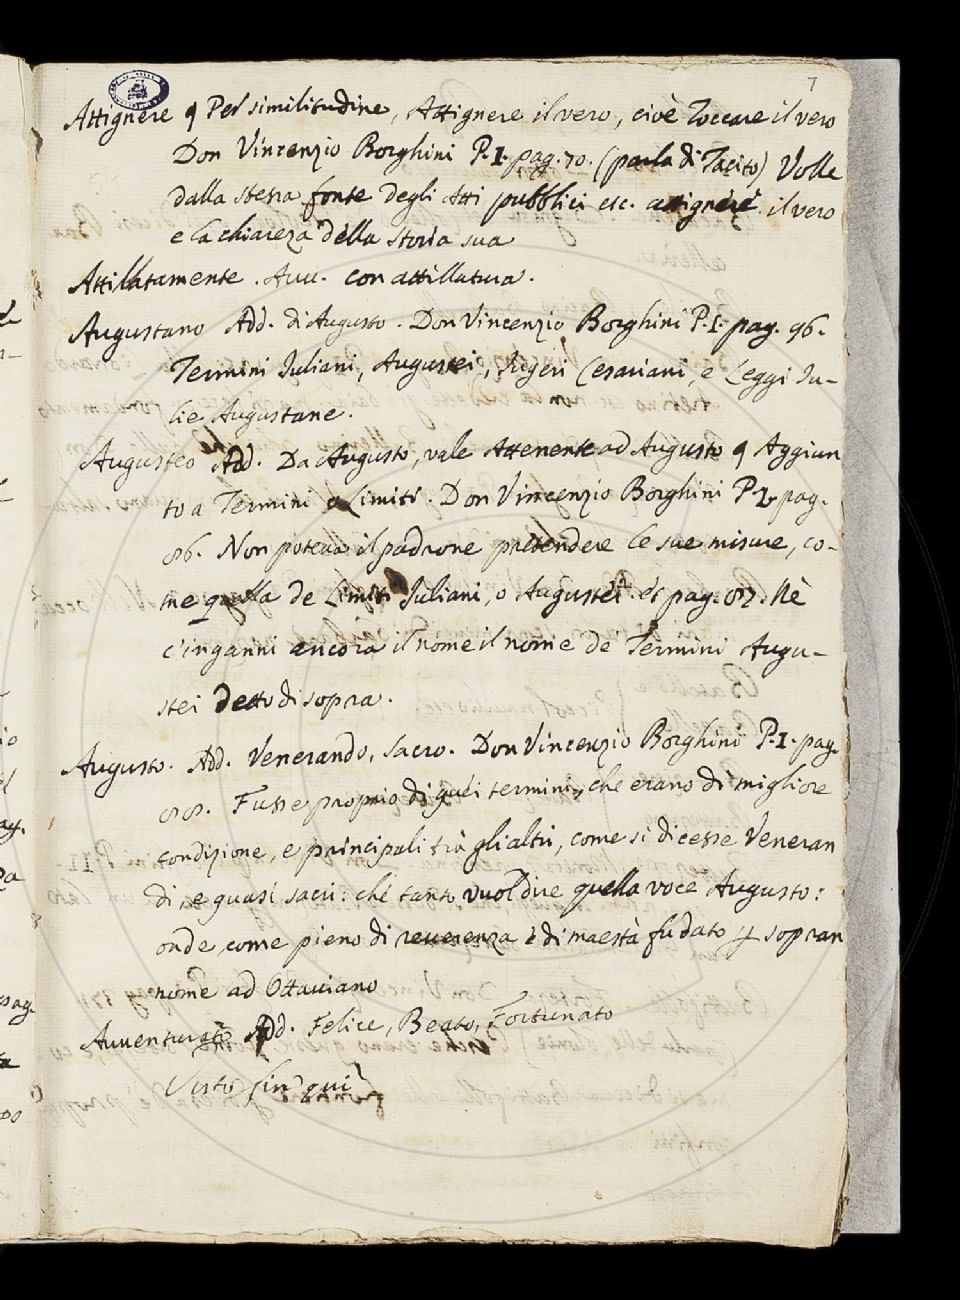 7
Attignere § Per similitudine, Attignere il vero, cioè Toccare il vero
Don Vincenzio Borghini P. I. pag. 70. (parla di Tacito) Volle
dalla stessa fonte degli Atti pubblici etc. attignere il vero
e la chiareza della storia sua
Attillatamente. Avv. con attillatura.
Augustano Add. di Augusto. Don Vincenzio Borghini P. I. pag. 96.
Termini Iuliani, Augustei, Cesariani, e Leggi Iu-
lie Augustane.
Augusteo Add. Da Augusto, vale Attenente ad Augusto § Aggiun
to a Termini o Limiti. Don Vincenzio Borghini P. I. pag.
86. Non poteva il padrone pretendere le sue misure, co-
me quella de Limiti Iuliani, o Augustei. et pag. 87. Nè
c'inganni ancora il nome il nome de Termini Augu-
stei detto di sopra.
Augusto. Add. Venerando, Sacro. Don Vincenzio Borghini P. I. pag.
88. Fusse proprio di quei termini, che erano di migliore
condizione, e principali trà gli altri, come si dicesse Veneran
di, e quasi sacri: chè tanto vuol dire quella voce Augusto:
onde, come pieno di reverenza e di maestà fu dato p sopran
nome ad Ottaviano
Avventurato Add. Felice, Beato, Fortunato
Visto fin qui